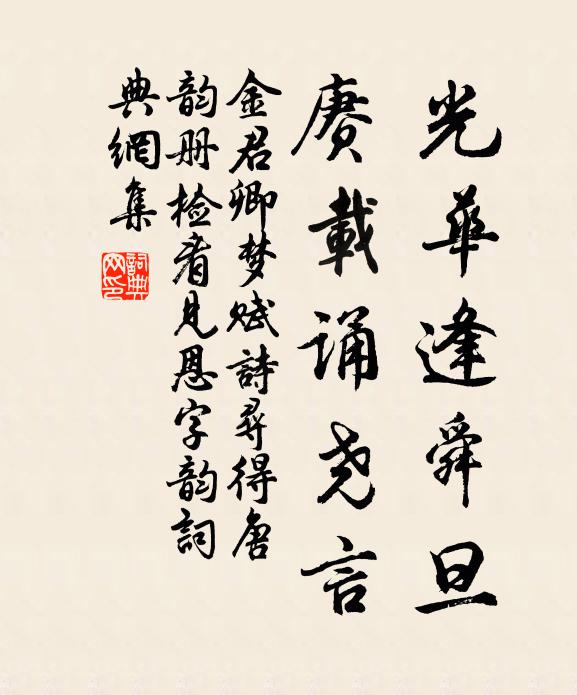 光華逢舜旦
賡載诵尧言
金君卿梦赋詩尋得唐
韵册检看见恩字韵詞
典網集
詞典
网印